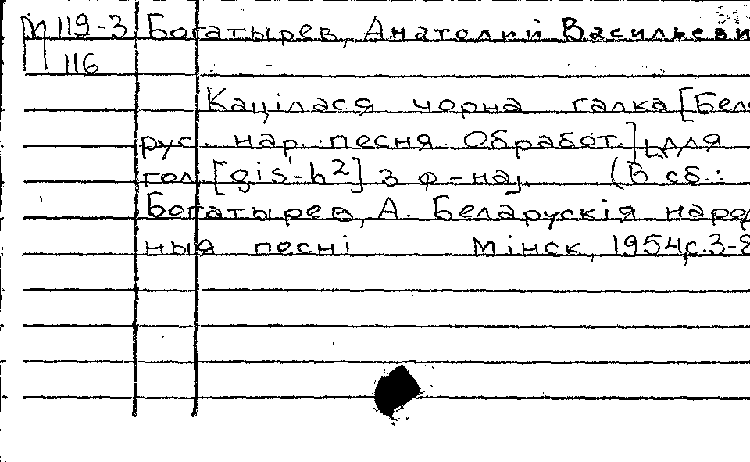 М 119-3 Богатырев, Анатолий Василькеви
116
Кацілася чорна галка [Бела
рус. нар. песня. Обработ.] для
гол. [gis-h²] з ф-на, (В сб.:
Богатырев, А. Беларускія народ
ныя песні Мінск, 1954, с. 3-8